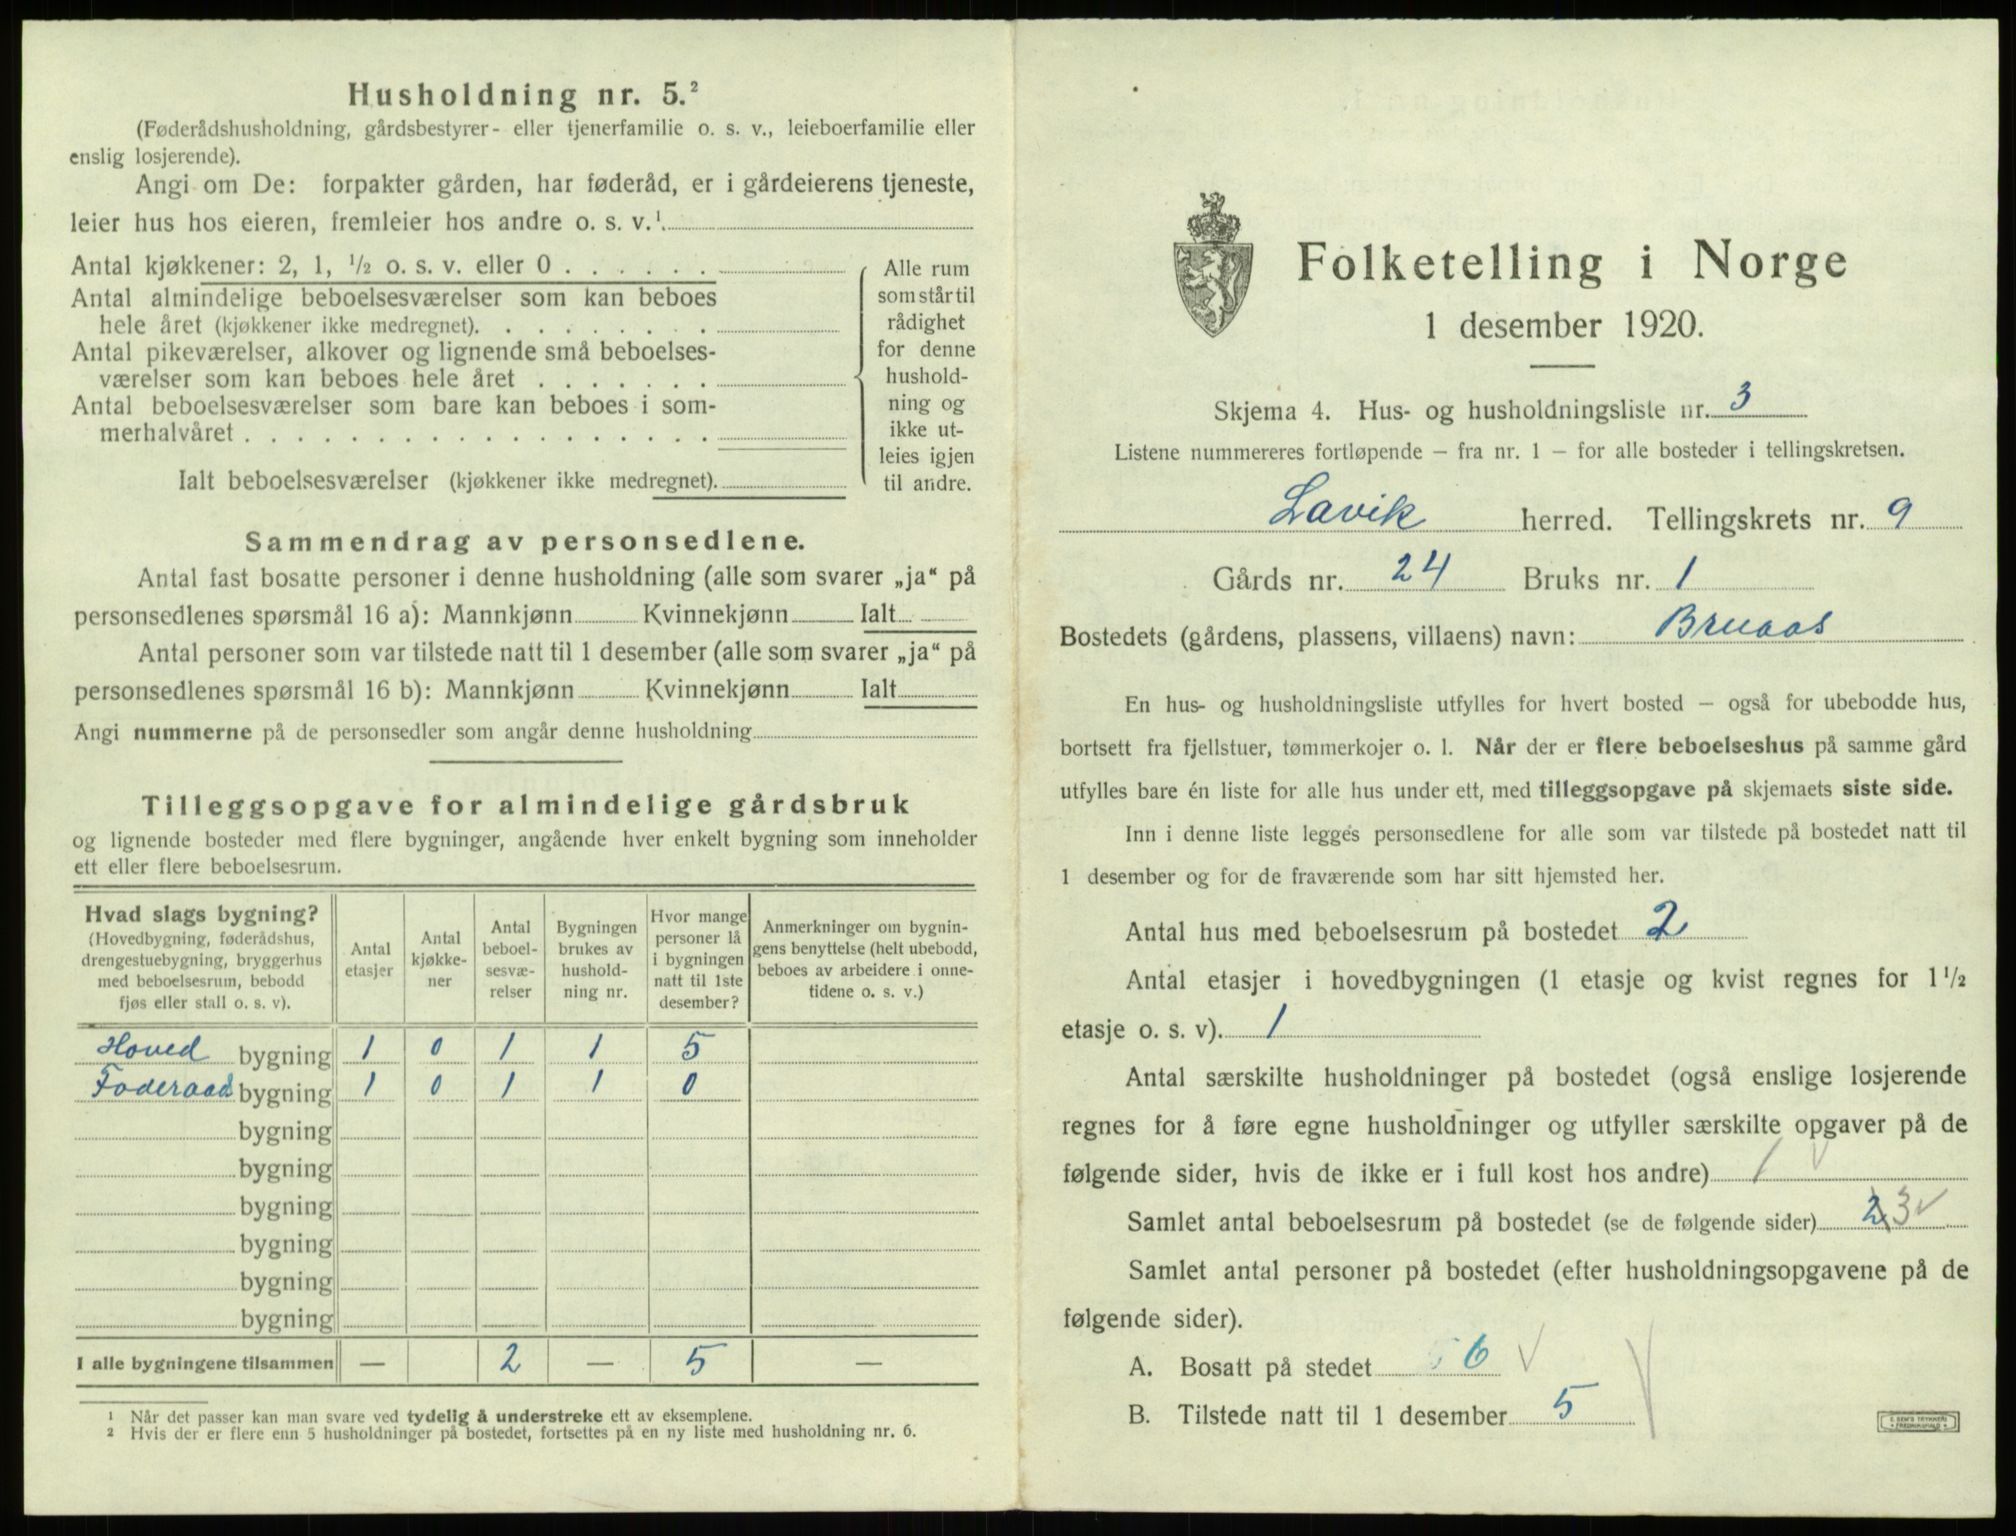 Husholdning nr. 5.²
(Føderådshusholdning, gårdsbestyrer- eller tjenerfamilie o. s. v., leieboerfamilie eller
enslig losjerende).
Angi om De: forpakter gården, har føderåd, er i gårdeierens tjeneste,
leier hus hos eieren, fremleier hos andre o. s. v.¹
Antal kjøkkener: 2, 1, ½ o. s. v. eller 0 . . . . . .
Antal almindelige beboelsesværelser som kan beboes
hele året (kjøkkener ikke medregnet). . . . . . . . .
Antal pikeværelser, alkover og lignende små beboelses-
værelser som kan beboes hele året . . . . . . .
Antal beboelsesværelser som bare kan beboes i som-
merhalvåret . . . . . . . . . . . . . . . . . .
Alle rum
som står til
rådighet
for denne
hushold-
ning og
ikke ut-
leies igjen
til andre.
Ialt beboelsesværelser (kjøkkener ikke medregnet).
Sammendrag av personsedlene.
Antal fast bosatte personer i denne husholdning (alle som svarer „ja“ på
personsedlenes spørsmål 16 a): Mannkjønn Kvinnekjønn Ialt
Antal personer som var tilstede natt til 1 desember (alle som svarer „ja“ på
personsedlenes spørsmål 16 b): Mannkjønn Kvinnekjønn Ialt
Angi nummerne på de personsedler som angår denne husholdning
Tilleggsopgave for almindelige gårdsbruk
og lignende bosteder med flere bygninger, angående hver enkelt bygning som inneholder
ett eller flere beboelsesrum.
Hvad slags bygning?
(Hovedbygning, føderådshus,
drengestuebygning, bryggerhus
med beboelsesrum, bebodd
fjøs eller stall o. s. v).
Antal
etasjer
Antal
kjøkke-
ner
Antal
beboel-
sesvæ-
relser
Bygningen
brukes av
hushold-
ning nr.
Hvor mange
personer lå
i bygningen
natt til 1ste
desember?
Anmerkninger om bygnin-
gens benyttelse (helt ubebodd,
beboes av arbeidere i onne-
tidene o. s. v.)
Hoved bygning 1 0 1 1 5
Føderaads bygning 1 0 1 1 0
bygning
bygning
bygning
bygning
bygning
bygning
I alle bygningene tilsammen — 2 — 5 —
¹ Når det passer kan man svare ved tydelig å understreke ett av eksemplene.
² Hvis der er flere enn 5 husholdninger på bostedet, fortsettes på en ny liste med husholdning nr. 6.
Folketelling i Norge
1 desember 1920.
Skjema 4. Hus- og husholdningsliste nr. 3
Listene nummereres fortløpende – fra nr. 1 – for alle bosteder i tellingskretsen.
Lavik herred. Tellingskrets nr. 9
Gårds nr. 24 Bruks nr. 1
Bostedets (gårdens, plassens, villaens) navn: Bruaas
En hus- og husholdningsliste utfylles for hvert bosted – også for ubebodde hus,
bortsett fra fjellstuer, tømmerkojer o. l. Når der er flere beboelseshus på samme gård
utfylles bare én liste for alle hus under ett, med tilleggsopgave på skjemaets siste side.
Inn i denne liste legges personsedlene for alle som var tilstede på bostedet natt til
1 desember og for de fraværende som har sitt hjemsted her.
Antal hus med beboelsesrum på bostedet 2
Antal etasjer i hovedbygningen (1 etasje og kvist regnes for 1½
etasje o. s. v). 1
Antal særskilte husholdninger på bostedet (også enslige losjerende
regnes for å føre egne husholdninger og utfyller særskilte opgaver på de
følgende sider, hvis de ikke er i full kost hos andre) 1 ✓
Samlet antal beboelsesrum på bostedet (se de følgende sider) 2 3 ✓
Samlet antal personer på bostedet (efter husholdningsopgavene på de
følgende sider).
A. Bosatt på stedet 6 ✓
B. Tilstede natt til 1 desember 5